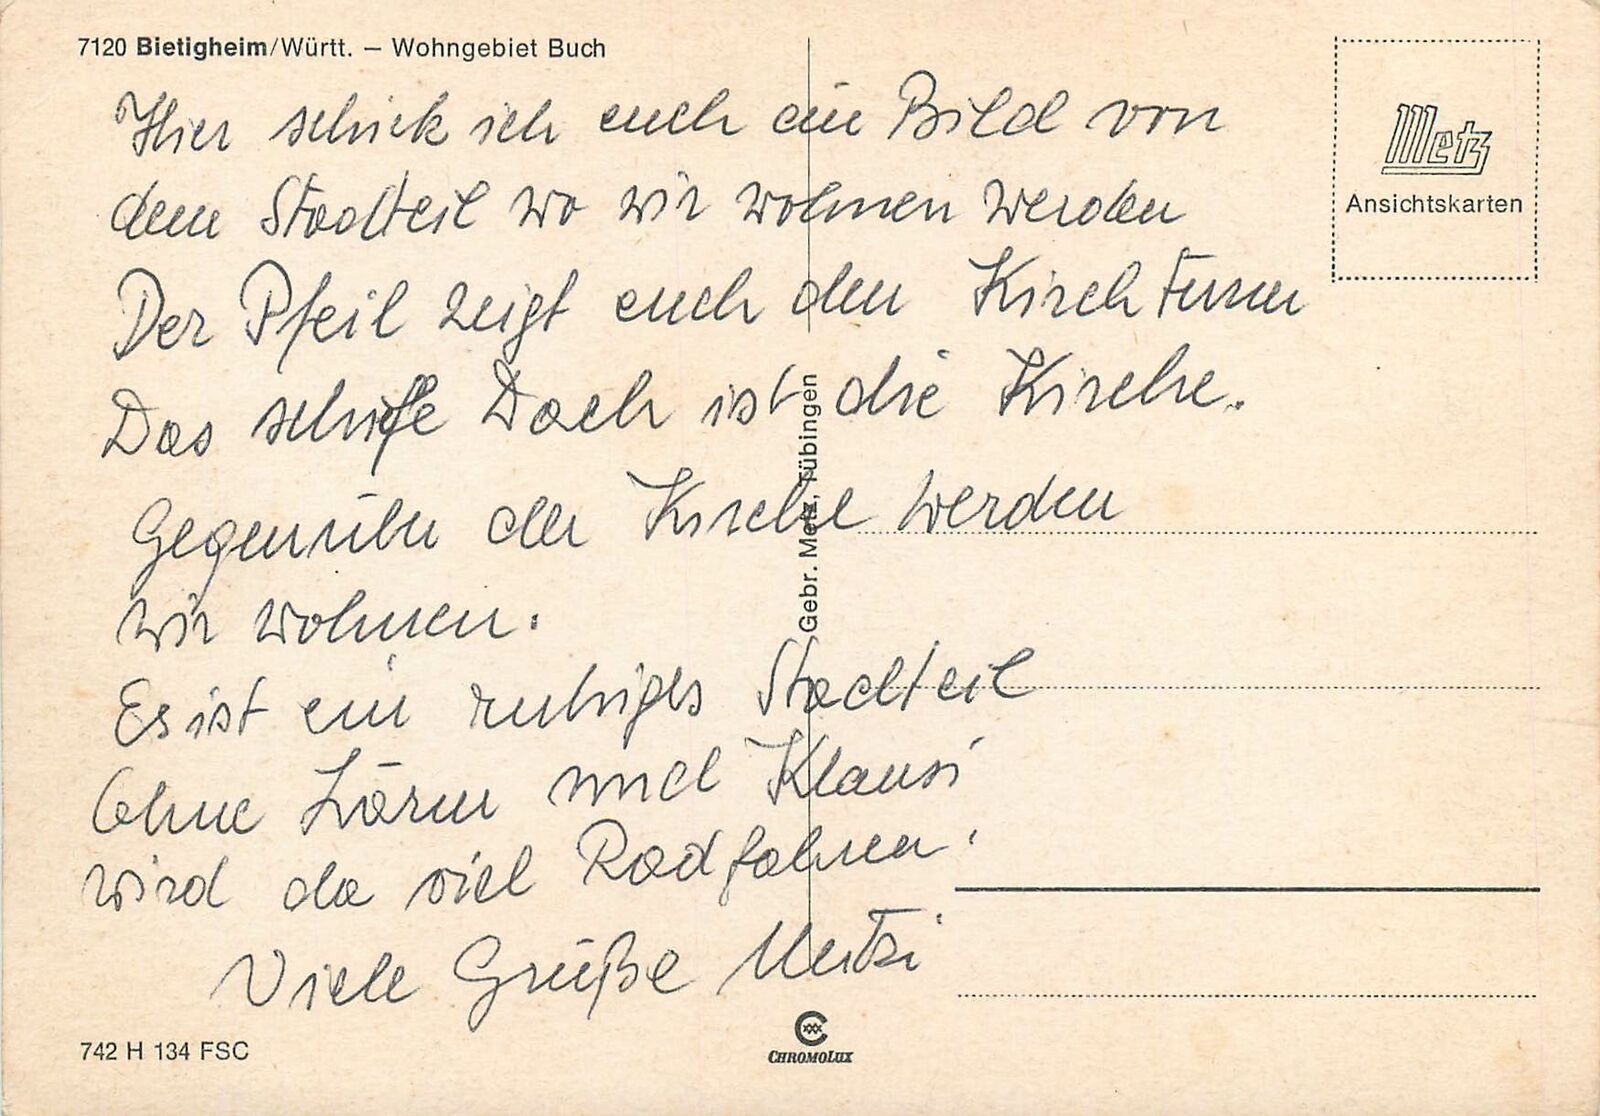 7120 Bietigheim/Württ. – Wohngebiet Buch
Hier schick ich euch ein Bild von
dem Stadteil wo wir wohnen werden
Der Pfeil zeigt euch den Kirchturm
Das schiefe Dach ist die Kirche.
Gegenüber der Kirche werden
wir wohnen.
Es ist ein ruhiges Stadteil
Ohne Lärm und Klausi
wird da viel Radfahren.
Viele Grüße
Metz
Ansichtskarten
Gebr. Metz, Tübingen
742 H 134 FSC
CHROMOLUX